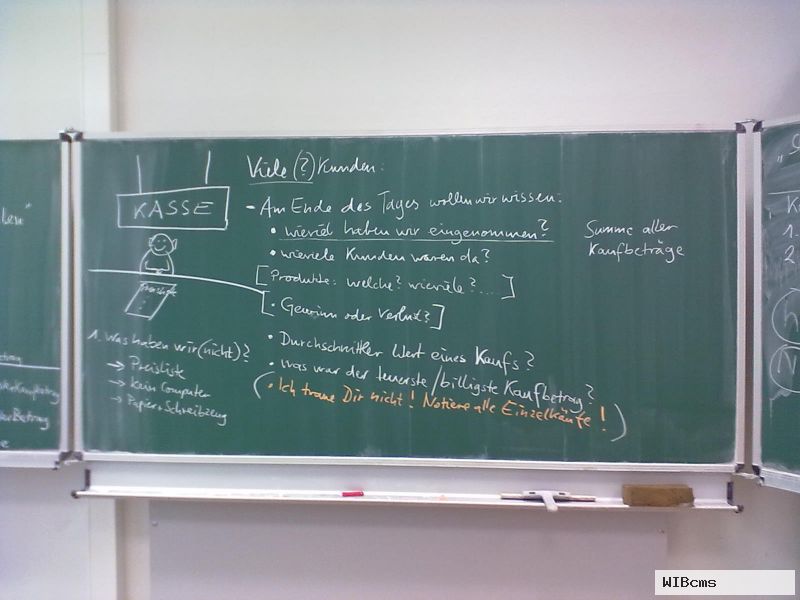 KASSE
Preisliste
1. Was haben wir (nicht)?
→ Preisliste
→ kein Computer
→ Papier + Schreibzeug
Viele (?) Kunden:
- Am Ende des Tages wollen wir wissen:
• wieviel haben wir eingenommen?
• wieviele Kunden waren da?
[Produkte: welche? wieviele?...]
[• Gewinn oder Verlust?]
• Durchschnittler Wert eines Kaufs?
• was war der teuerste/billigste Kaufbetrag?
(• Ich traue Dir nicht! Notiere alle Einzelkäufe!)
Summe aller
Kaufbeträge
1.
2
h
N
WIBcms